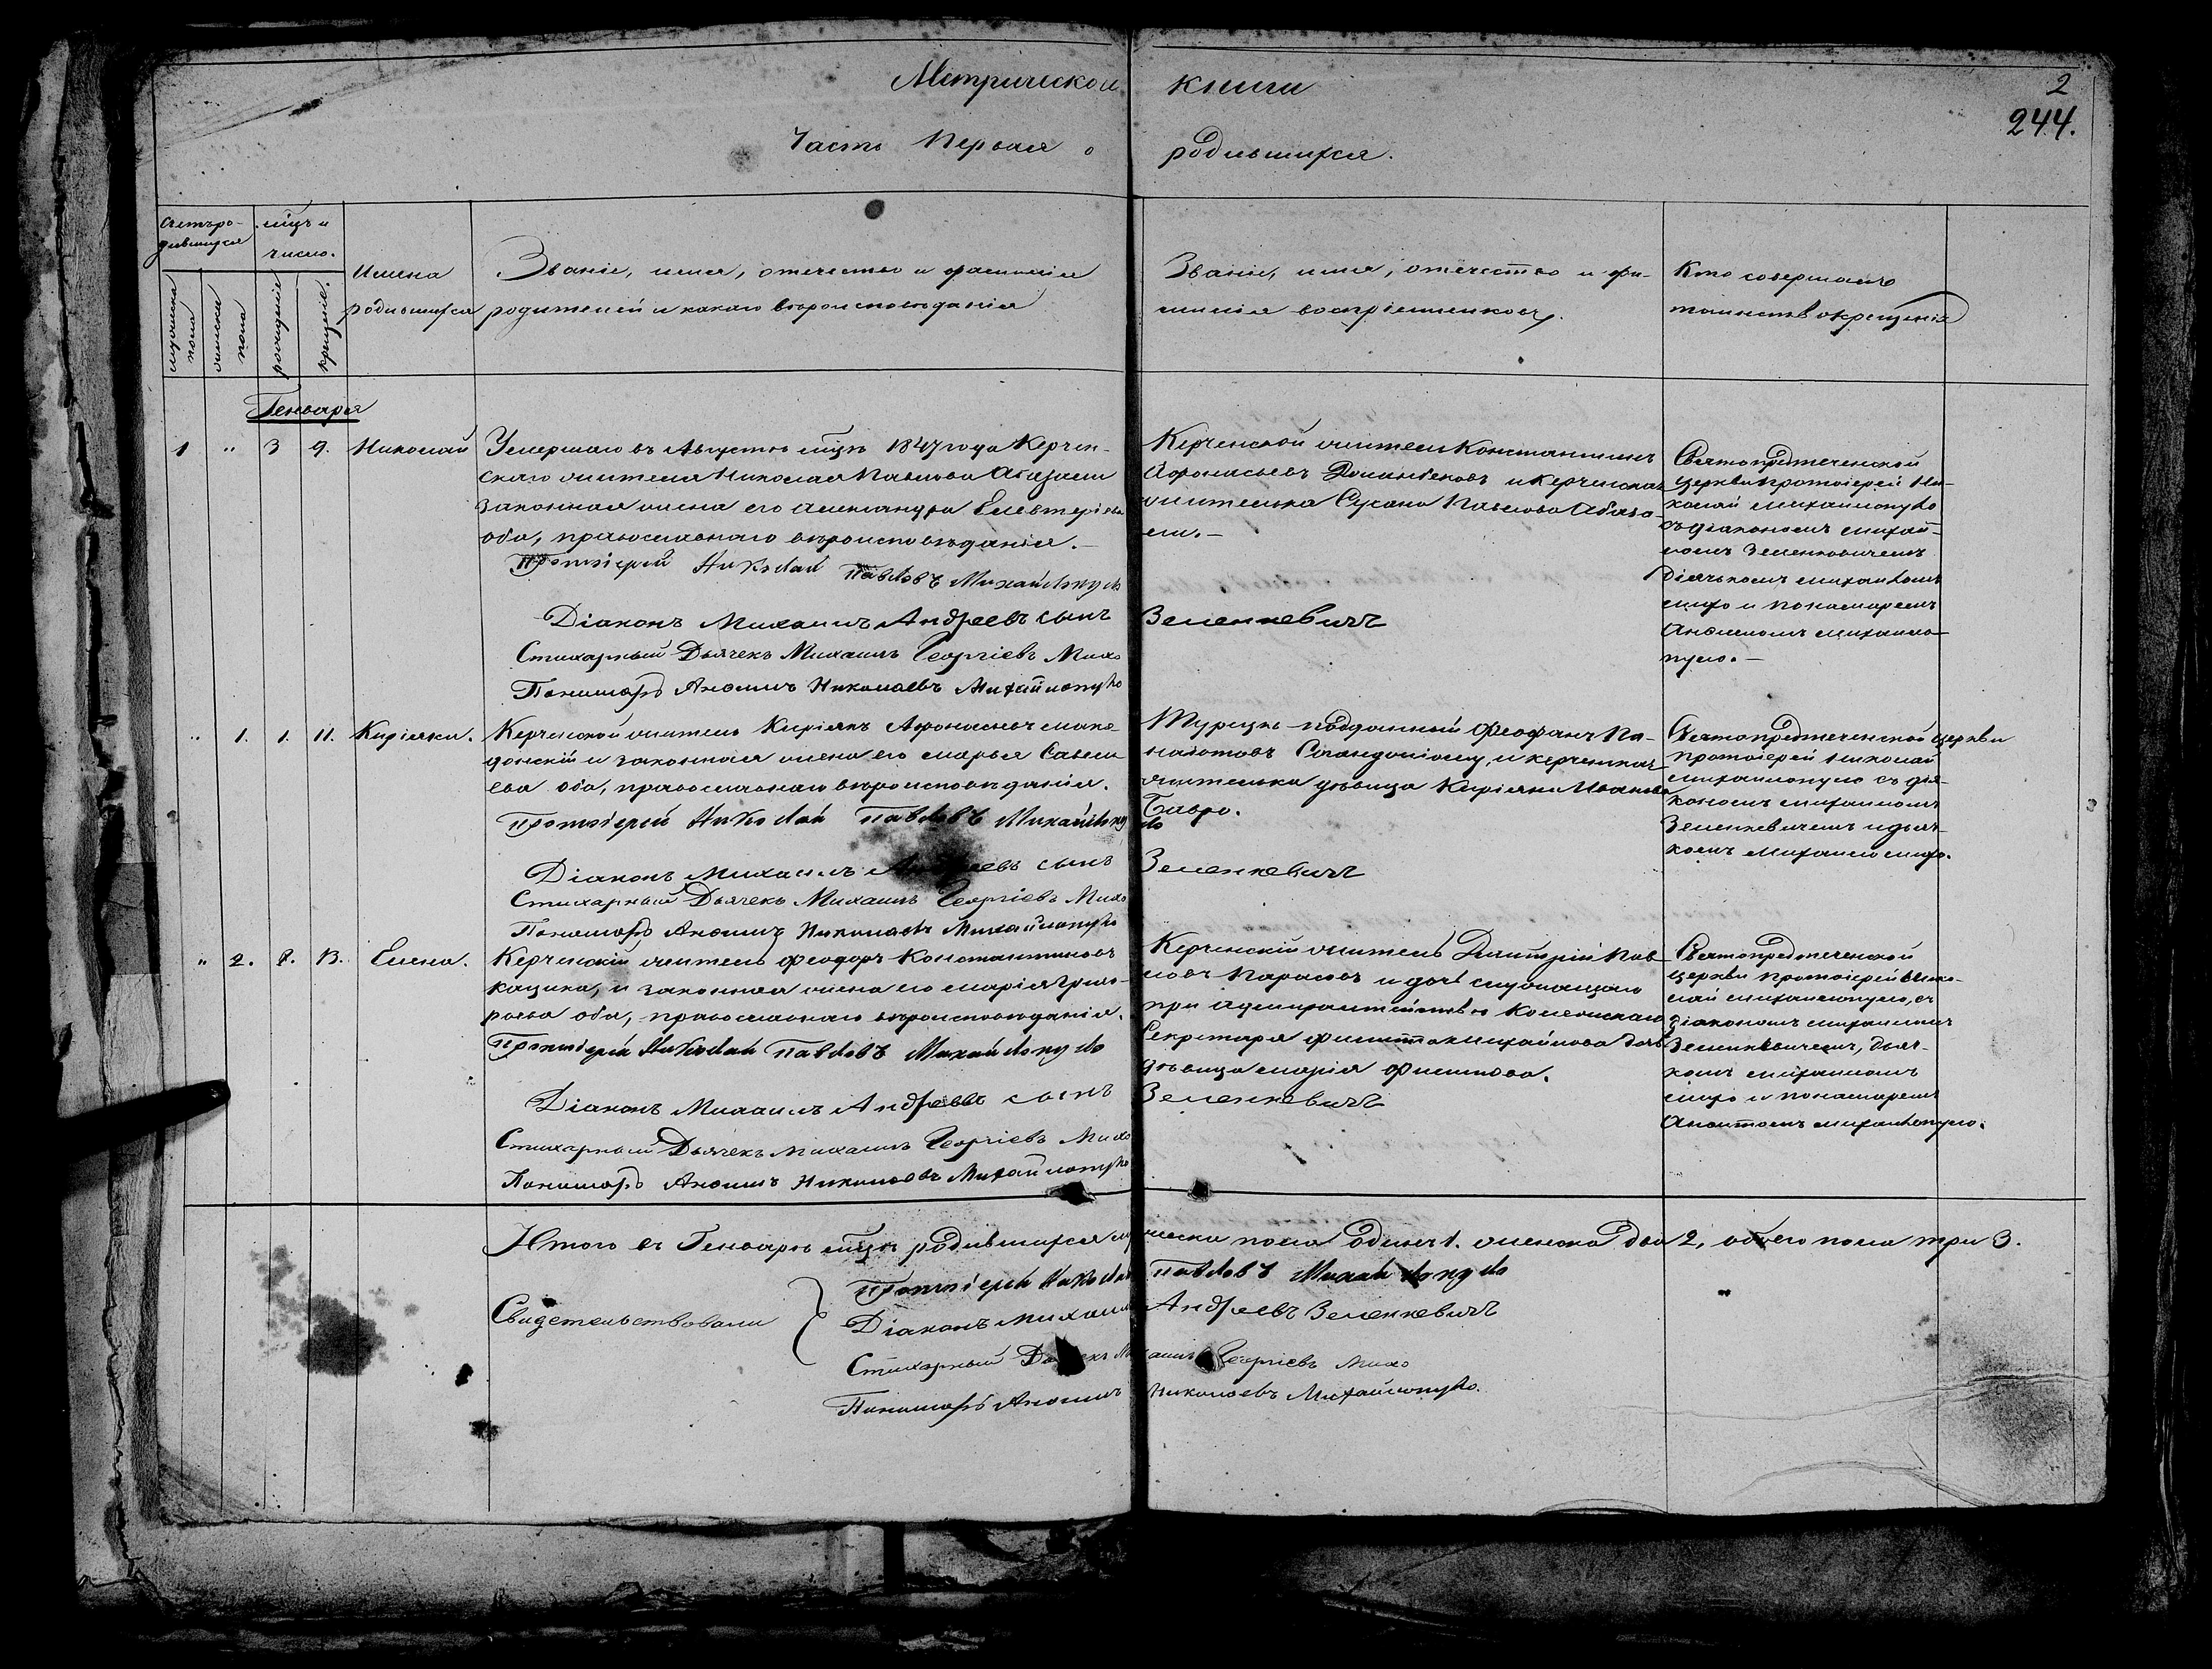 Метрической книги
2
244.
Часть Первая о родившихся.
Счетъ родившихся
мѣцъ и число.
мужеска пола
женска пола
рожденіе
крещеніе.
Имена родившихся
Званіе, имя, отчество и фамилія
родителей и какаго вѣроисповѣданія
Званіе, имя, отчество и фа-
милія воспріемниковъ.
Кто совершалъ
таинство крещенія
Генваря
1 " 3 9. Николай
Умершаго въ Августѣ мѣцѣ 1847 года Керчен-
скаго жителя Николая Павлова
законная жена его Александра Елевтеріева
оба, православнаго вѣроисповѣданія.—
Протоіерей Николай Павловъ Михайлопуло
Діаконъ Михаилъ Андреевъ сынъ Зеленкевичъ
Стихарный Дьячекъ Михаилъ Георгіевъ Михо
Пономарь Николаевъ Михайлопуло
Керченской житель Константинъ
Афонасьевъ и Керченская
жителька Сусана Павлова
Святопредтеченской
церкви протоіерей Ни-
колай Михайлопуло
съ діакономъ Михаи-
ломъ Зеленковичемъ
Діячькомъ Михаиломъ
Михо и понамаремъ
Михайло-
пуло.—
" 1. 1. 11. Киріяки.
Керченской житель Киріякъ Афонасьевъ Маке-
донскій и законная жена его Марья Савели-
ева оба, православнаго вѣроисповѣданія.
Протоіерей Николай Павловъ Михайлопуло
Діаконъ Михаилъ Андреевъ сынъ Зеленкевичъ
Стихарный Дьячекъ Михаилъ Георгіевъ Михо
Пономарь Николаевъ Михайлопуло
Турецко-подданный Феофанъ Па-
наіотовъ и керченская
жителька дѣвица Киріяки Иванова
Тавро.
Святопредтеченской церкви
протоіерей Николай
Михайлопуло съ дія-
кономъ Михаиломъ
Зеленкевичемъ и дьяч-
комъ Михаило Михо.
" 2. 8. 13. Елена.
Керченской житель Феодоръ Константиновъ
и законная жена его Марія Григо-
рьева оба, православнаго вѣроисповѣданія.
Протоіерей Николай Павловъ Михайлопуло
Діаконъ Михаилъ Андреевъ сынъ Зеленкевичъ
Стихарный Дьячекъ Михаилъ Георгіевъ Михо
Пономарь Николаевъ Михайлопуло
Керченскій житель Дмитрій Пав-
ловъ и дочь служащаго
при Адмиралтействѣ
Секретаря
дѣвица Марія Филипова.
Святопредтеченской
церкви протоіерей Нико-
лай Михайлопуло, съ
діакономъ Михаиломъ
Зеленкевичемъ, дьяч-
комъ Михаиломъ
Михо и понамаремъ
Михайлопуло.
Итого въ Генварѣ мѣцѣ родившихся мужеска пола одинъ 1. женска два 2, обоего пола три 3.
Свидетельствовали
Протоіерей Николай Павловъ Михайлопуло
Діаконъ Михаилъ Андреевъ Зеленкевичъ
Стихарный Дьячекъ Михаилъ Георгіевъ Михо
Пономарь Николаевъ Михайлопуло.